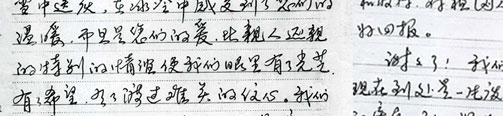 雪中送炭，在冰冷中感受到了您们的
温暖，而且是您们的爱，比亲人还亲
的特别的情谊使我们眼里有了光芒，
有了希望，有了渡过难关的信心。我们
好回报。
谢谢了！我们
现在到处是一片